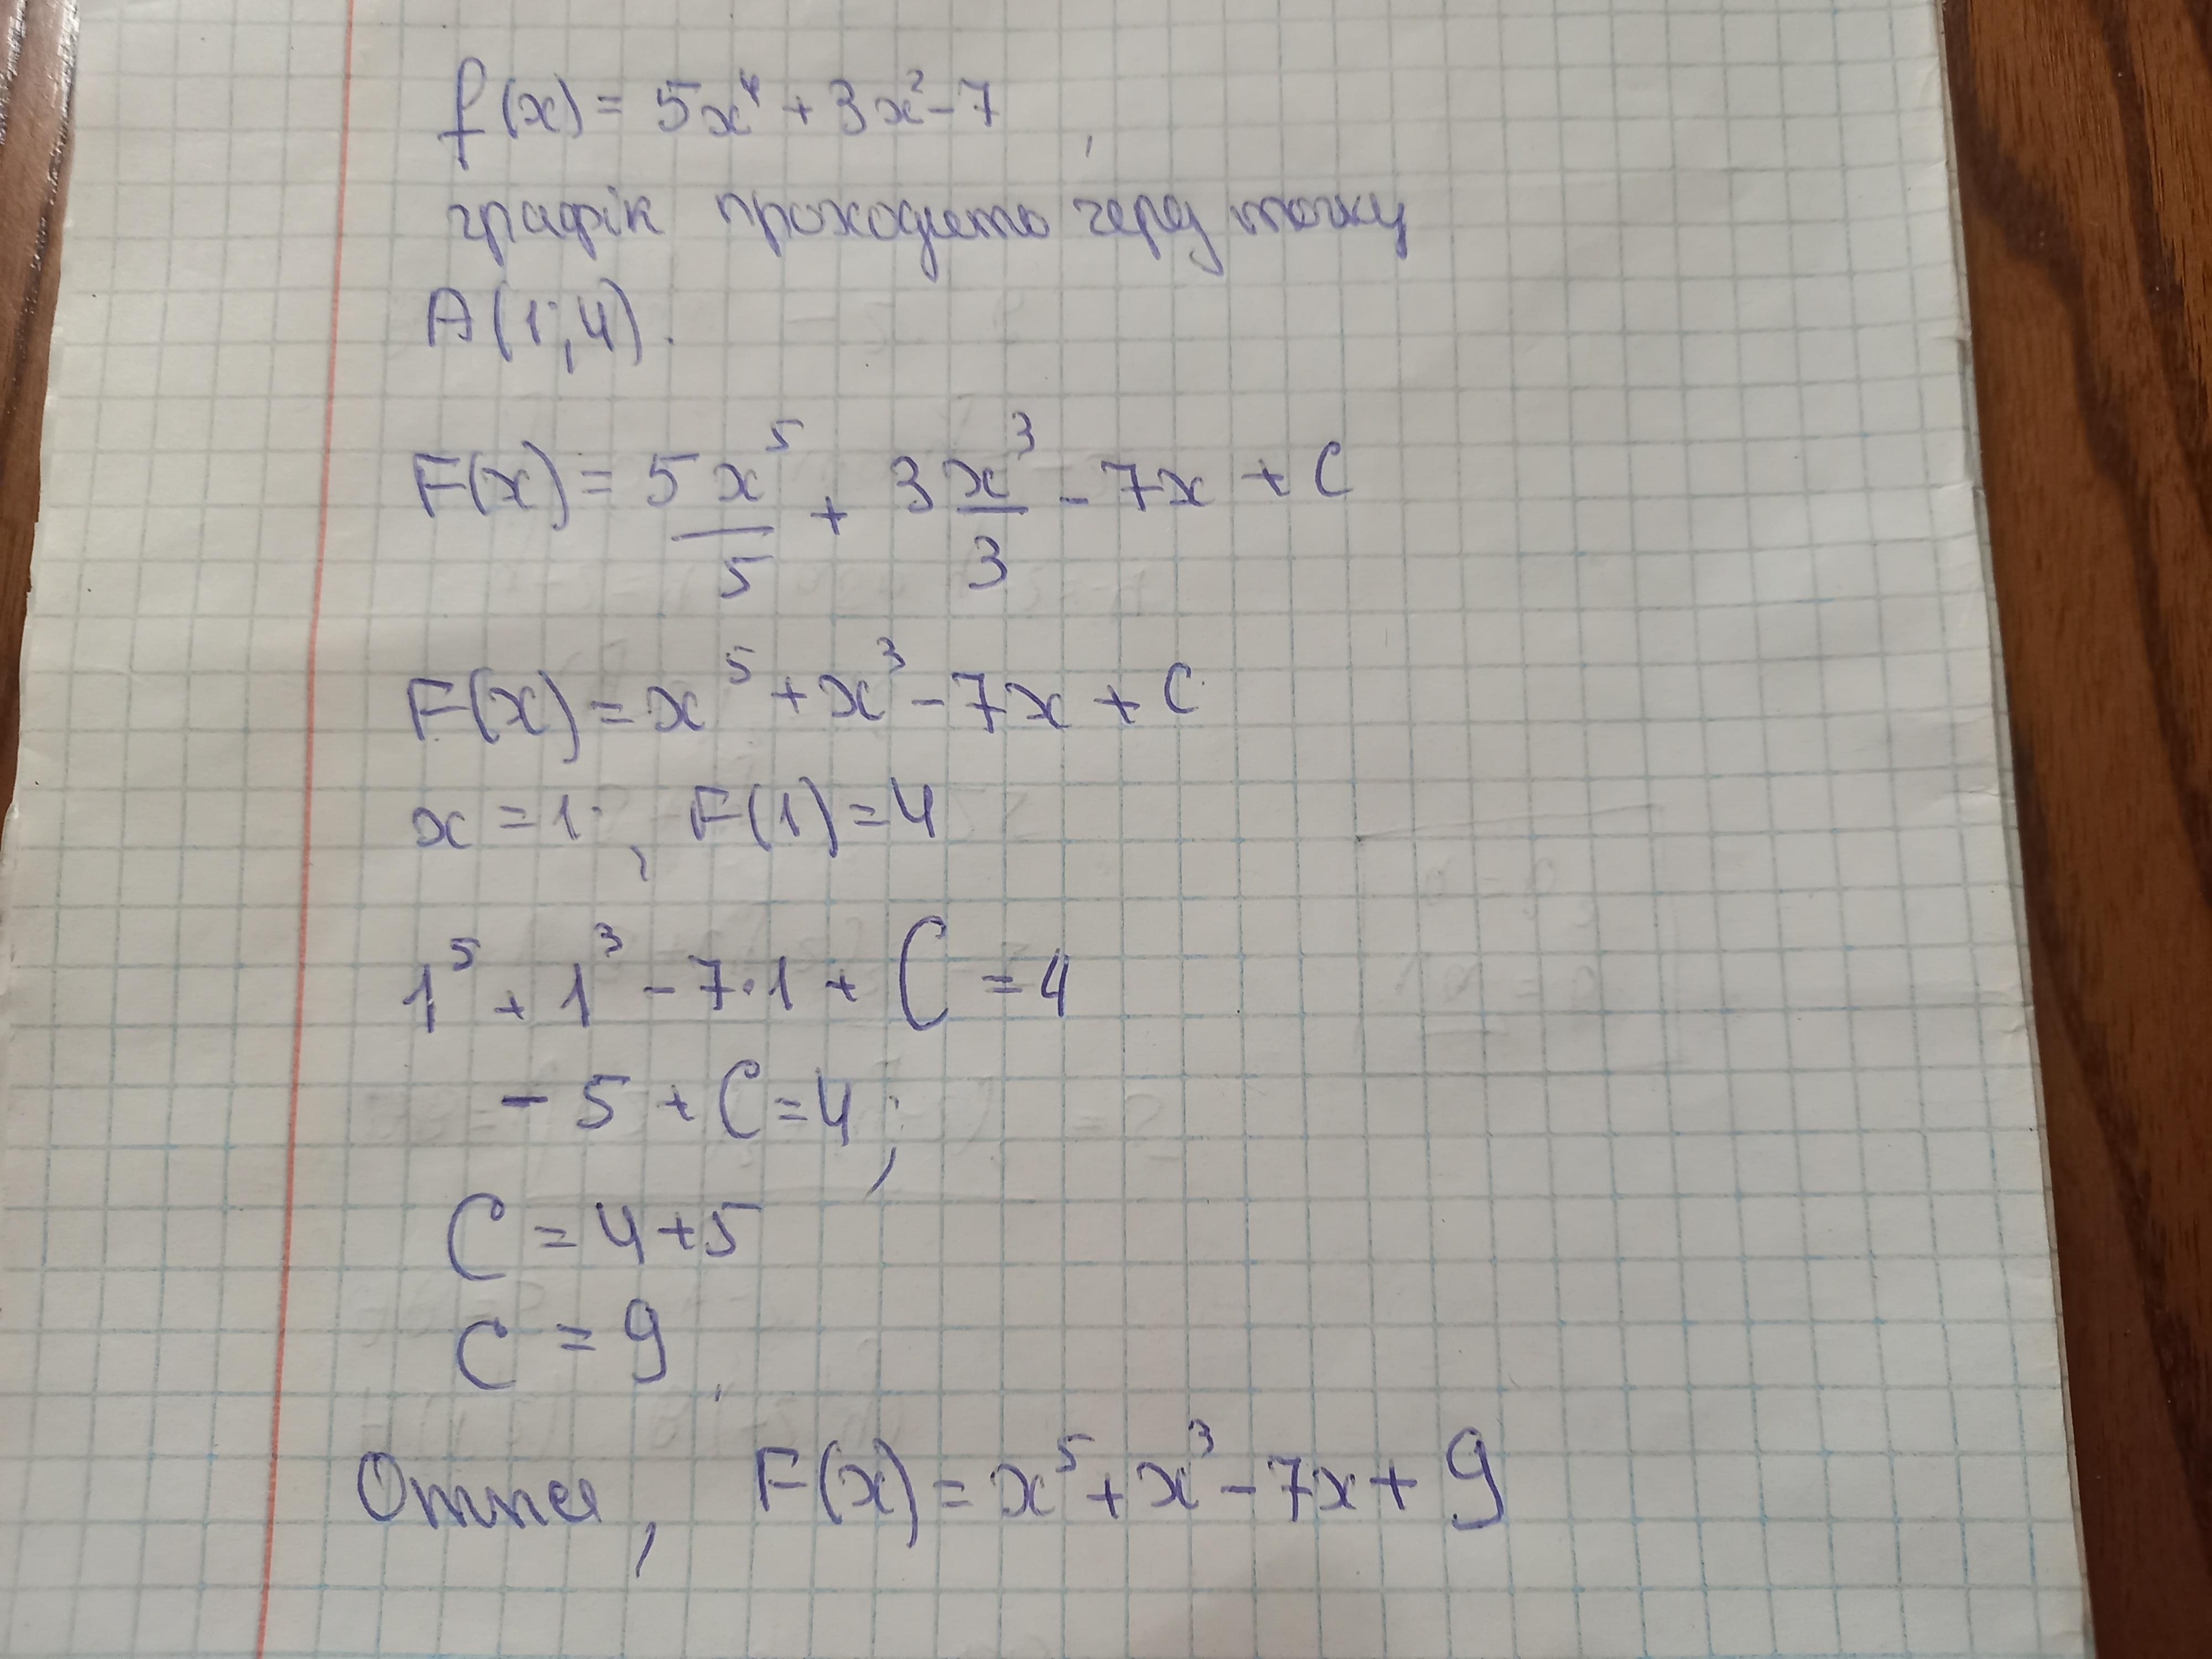 f(x) = 5x⁴ + 3x² - 7,
графік проходить через точку
A(1;4).
F(x) = 5x⁵/5 + 3x³/3 - 7x + C
F(x) = x⁵ + x³ - 7x + C
x = 1; F(1) = 4
1⁵ + 1³ - 7·1 + C = 4
- 5 + C = 4;
C = 4 + 5
C = 9.
Отже, F(x) = x⁵ + x³ - 7x + 9